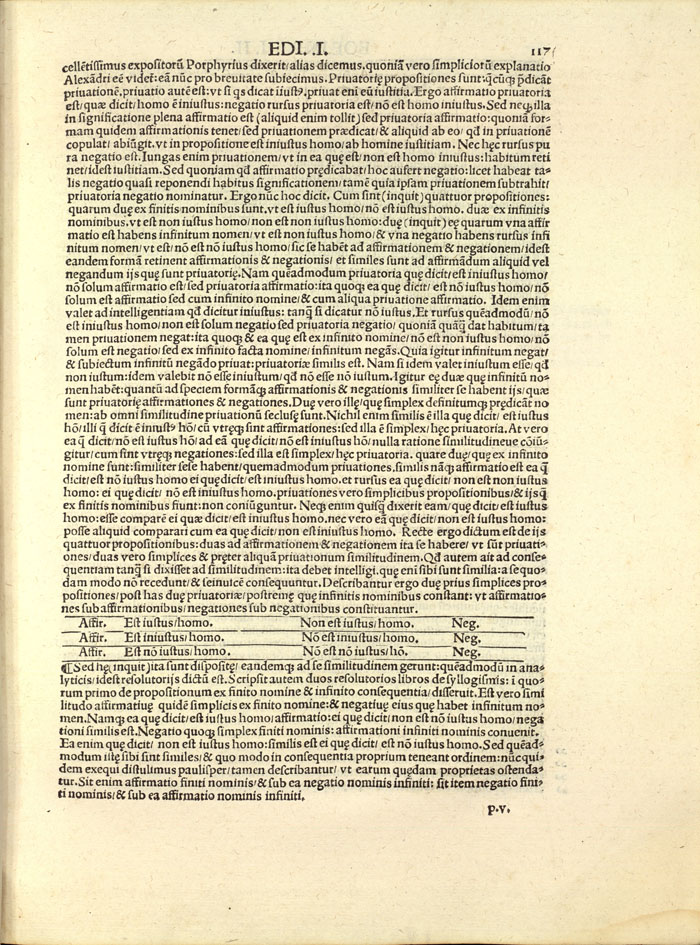 EDI. .I.
117
cellētissimus expositorū Porphyrius dixerit/alias dicemus.quoniā vero simpliciorū explanatio
Alexādri eē videt̄:eā nūc pro breuitate subiecimus.Priuatorię propositiones sunt:q̄cūqꝫ p̄dicāt
priuationē.priuatio autē est:vt si qs dicat iiustꝰ.priuat eni eū iustitia.Ergo affirmatio priuatoria
est/quæ dicit/homo ē iniustus:negatio rursus priuatoria est/nō est homo iniustus.Sed neqꝫ.illa
in significatione plena affirmatio est (aliquid enim tollit) sed priuatoria affirmatio:quoniā for-
mam quidem affirmationis tenet/sed priuationem prædicat/& aliquid ab eo/ qd̄ in priuationē
copulat/abiūgit.vt in propositione est iniustus homo/ab homine iustitiam. Nec hęc rursus pu
ra negatio est.Iungas enim priuationem/vt in ea quę est/non est homo iniustus:habitum reti
net/idest iustitiam. Sed quoniam qd̄ affirmatio prędicabat/hoc aufert negatio:licet habeat ta-
lis negatio quasi reponendi habitus significationem/tamē quia ipsam priuationem subtrahit/
priuatoria negatio nominatur. Ergo nūc hoc dicit. Cum sint(inquit)quattuor propositiones:
quarum duę ex finitis nominibus sunt.vt est iustus homo/nō est iustus homo. duæ ex infinitis
nominibus.vt est non iustus homo/non est non iustus homo: duę(inquit)eę quarum vna affir
matio est habens infinitum nomen/vt est non iustus homo/& vna negatio habens rursus infi
nitum nomen/vt est/nō est nō iustus homo/sic se habēt ad affirmationem & negationem/idest
eandem formā retinent affirmationis & negationis/et similes sunt ad affirmādum aliquid vel
negandum ijs quę sunt priuatorię.Nam quēadmodum priuatoria quę dicit/est iniustus homo/
nō solum affirmatio est/sed priuatoria affirmatio:ita quoqꝫ ea quę dicit/est nō iustus homo/nō
solum est affirmatio sed cum infinito nomine/& cum aliqua priuatione affirmatio. Idem enim
valet ad intelligentiam qd̄ dicitur iniustus: tanq̄ si dicatur nō iustus.Et rursus quēadmodū/nō
est iniustus homo/non est solum negatio sed priuatoria negatio/ quoniā quāq̄ dat habitum/ta
men priuationem negat:ita quoqꝫ & ea quę est ex infinito nomine/ nō est non iustus homo/nō
solum est negatio/sed ex infinito facta nomine/infinitum negās. Quia igitur infinitum negat/
& subiectum infinitū negādo priuat:priuatoriæ similis est. Nam si idem valet iniustum esse/ qd̄
non iustum:idem valebit nō esse iniustum/qd̄ nō esse nō iustum.Igitur eę duæ quę infinitū no-
men habēt:quantū ad speciem formāqꝫ affirmationis & negationis similiter se habent ijs/quæ
sunt priuatorię affirmationes & negationes. Duę vero illę/quę simplex definitumqꝫ prędicāt no
men:ab omni similitudine priuationū seclusę sunt.Nichil enim similis ē illa quę dicit/ est iustus
hō/illi q̄ dicit ē iniustꝰ hō/cū vtręqꝫ sint affirmationes:sed illa ē simplex/hęc priuatoria.At vero
ea q̄ dicit/nō est iustus hō/ad eā quę dicit/nō est iniustus hō/nulla ratione similitudineue cōiū-
gitur/cum sint vtręqꝫ negationes:sed illa est simplex/hęc priuatoria. quare duę/quę ex infinito
nomine sunt:similiter sese habent/quemadmodum priuationes.similis nāqꝫ affirmatio est ea q̄
dicit/est nō iustus homo ei quę dicit/est iniustus homo.et rursus ea quę dicit/non est non iustus
homo: ei quę dicit/ nō est iniustus homo.priuationes vero simplicibus propositionibus/& ijsqꝫ
ex finitis nominibus fiunt:non coniūguntur. Neqꝫ enim quisq̄ dixerit eam/quę dicit/est iustus
homo:esse comparē ei quæ dicit/est iniustus homo.nec vero eā quę dicit/non est iustus homo:
posse aliquid comparari cum ea quę dicit/non est iniustus homo. Recte ergo dictum est de ijs
quattuor propositionibus: duas ad affirmationem & negationem ita se habere/ vt sūt priuati-
ones/duas vero simplices & pręter aliquā priuationum similitudinem. Qd̄ autem ait ad conse-
quentiam tanq̄ si dixisset ad similitudinem:ita debet intelligi.quę eni sibi sunt similia:a se quo-
dam modo nō recedunt/& seinuicē consequuntur.Describantur ergo duę prius simplices pro-
positiones/post has duę priuatoriæ/postremę quę infinitis nominibus constant: vt affirmatio-
nes sub affirmationibus/negationes sub negationibus constituantur.
Affir. Est iustus/homo. Non est iustus/homo. Neg.
Affir. Est iniustus/homo. Nō est iniustus/homo. Neg.
Affir. Est nō iustus/homo. Nō est nō iustus/hō. Neg.
¶Sed hę(inquit)ita sunt dispositę/eandemqꝫ ad se similitudinem gerunt:quēadmodū in ana-
lyticis/idest resolutorijs dictū est.Scripsit autem duos resolutorios libros de syllogismis: i quo-
rum primo de propositionum ex finito nomine & infinito consequentia/disseruit.Est vero simi
litudo affirmatiuę quidē simplicis ex finito nomine:& negatiuę eius quę habet infinitum no-
men.Namqꝫ ea quę dicit/est iustus homo/affirmatio:ei quę dicit/non est nō iustus homo/nega
tioni similis est.Negatio quoqꝫ simplex finiti nominis: affirmationi infiniti nominis conuenit.
Ea enim quę dicit/ non est iustus homo:similis est ei quę dicit/ est nō iustus homo. Sed quēad-
modum illę sibi sunt similes/& quo modo in consequentia proprium teneant ordinem:nūc qui-
dem exequi distulimus paulisper/tamen describantur/ vt earum quędam proprietas ostenda-
tur.Sit enim affirmatio finiti nominis/& sub ea negatio nominis infiniti: sit item negatio fini-
ti nominis/& sub ea affirmatio nominis infiniti.
p.v.